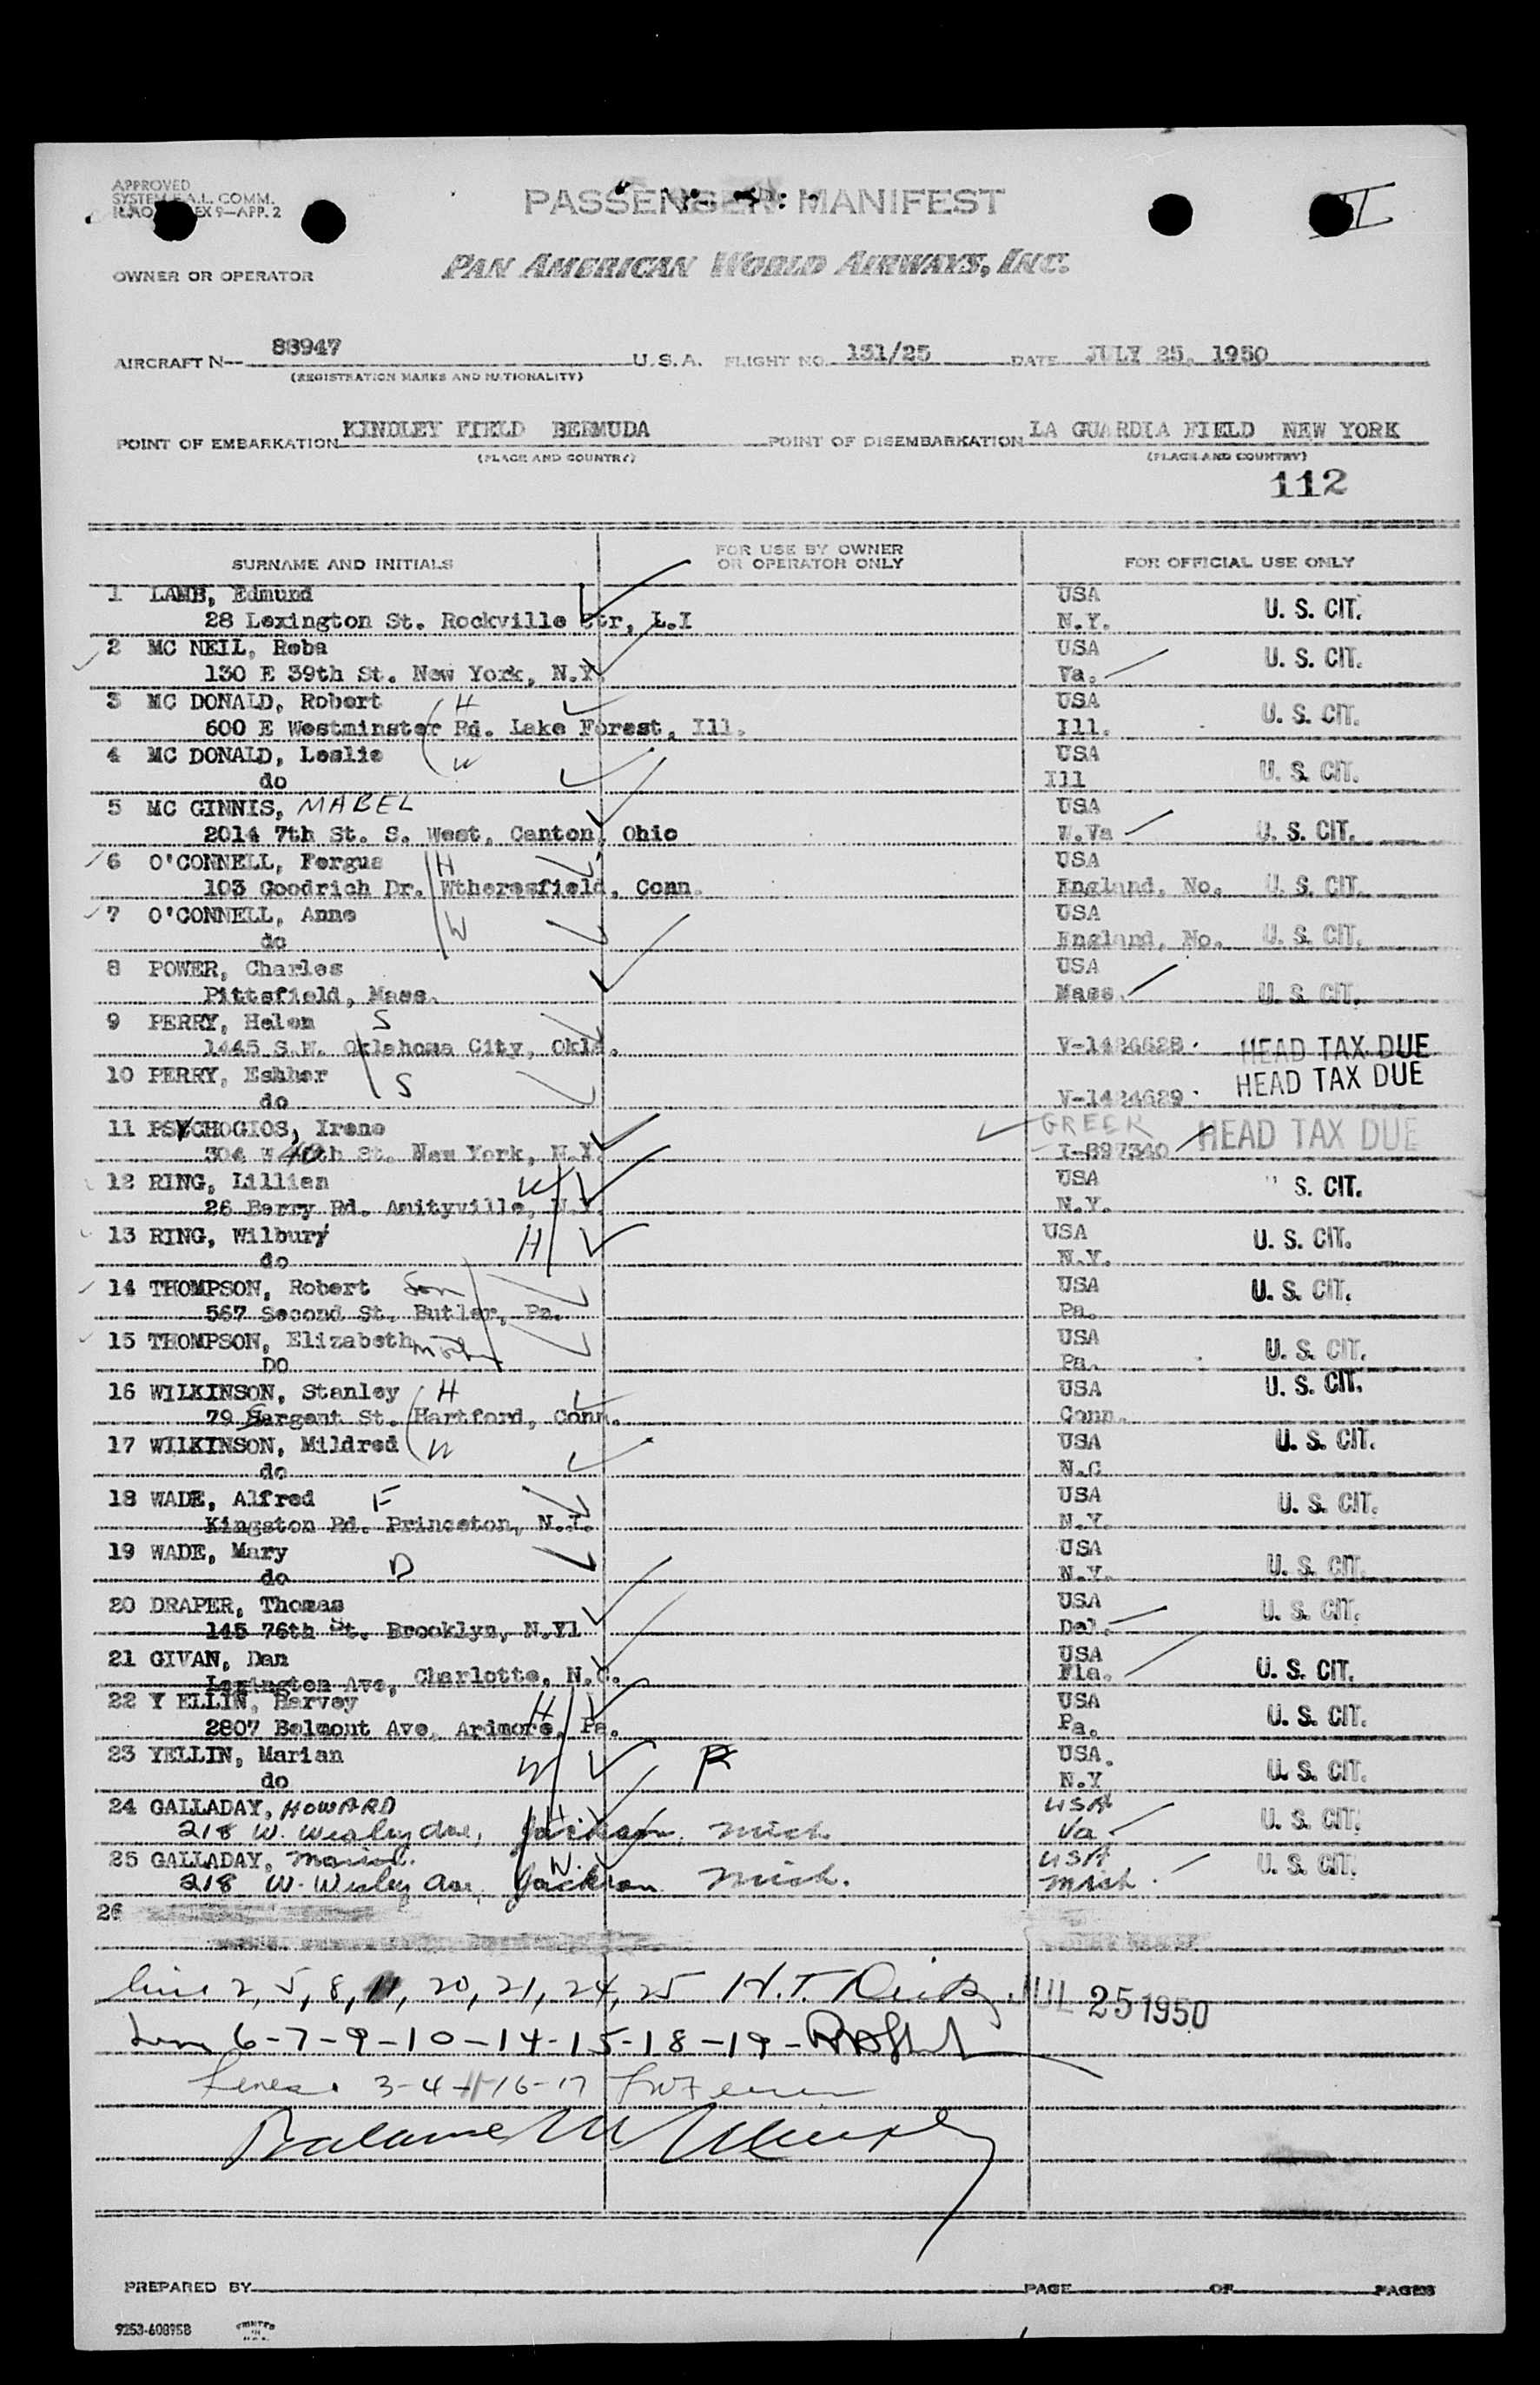 APPROVED
SYSTEM F.A.L. COMM.
EX 9—APP. 2
PASSENGER MANIFEST
II
OWNER OR OPERATOR
PAN AMERICAN WORLD AIRWAYS, INC.
AIRCRAFT N— 88947 U.S.A. FLIGHT NO. 131/25 DATE JULY 25, 1950
(REGISTRATION MARKS AND NATIONALITY)
POINT OF EMBARKATION KINDLEY FIELD BERMUDA POINT OF DISEMBARKATION LA GUARDIA FIELD NEW YORK
(PLACE AND COUNTRY) (PLACE AND COUNTRY)
112
SURNAME AND INITIALS FOR USE BY OWNER OR OPERATOR ONLY FOR OFFICIAL USE ONLY
1 LAMB, Edmund USA U. S. CIT.
28 Lexington St. Rockville Ctr, L.I N.Y.
2 MC NEIL, Reba USA U. S. CIT.
130 E 39th St. New York, N.Y. Va.
3 MC DONALD, Robert H USA U. S. CIT.
600 E Westminster Rd. Lake Forest, Ill. Ill.
4 MC DONALD, Leslie W USA U. S. CIT.
do Ill
5 MC GINNIS, MABEL USA
2014 7th St. S. West, Canton, Ohio W.Va U. S. CIT.
6 O'CONNELL, Fergus H USA
103 Goodrich Dr. Wtheresfield, Conn. England, No. U. S. CIT.
7 O'CONNELL, Anne W USA
do England, No. U. S. CIT.
8 POWER, Charles USA
Pittsfield, Mass. Mass. U. S. CIT.
9 PERRY, Helen S
1445 S.W. Oklahoma City, Okla. V-1424628 HEAD TAX DUE
10 PERRY, Eshher S HEAD TAX DUE
do V-1424629
11 PSYCHOGIOS, Irene GREEK HEAD TAX DUE
304 W 40th St. New York, N.Y. I-897340
12 RING, Lillian W USA S. CIT.
26 Berry Rd. Amityville, N.Y. N.Y.
13 RING, Wilbur H USA U. S. CIT.
do N.Y.
14 THOMPSON, Robert Son USA U. S. CIT.
567 Second St. Butler, Pa. Pa.
15 THOMPSON, Elizabeth USA U. S. CIT.
DO Pa.
16 WILKINSON, Stanley H USA U. S. CIT.
79 Sargent St. Hartford, Conn. Conn.
17 WILKINSON, Mildred W USA U. S. CIT.
do N.C
18 WADE, Alfred F USA U. S. CIT.
Kingston Rd. Princeton, N.J. N.Y.
19 WADE, Mary D USA U. S. CIT.
do N.Y.
20 DRAPER, Thomas USA U. S. CIT.
145 76th St. Brooklyn, N.Yl Del.
21 GIVAN, Dan USA U. S. CIT.
Lexington Ave, Charlotte, N.C. Fla.
22 Y ELLIN, Harvey H USA U. S. CIT.
2807 Belmont Ave, Ardmore, Pa. Pa.
23 YELLIN, Marian W R USA. U. S. CIT.
do N.Y
24 GALLADAY, HOWARD H. USA U. S. CIT.
218 W. Wesley Ave, Jackson Mich Va.
25 GALLADAY, W. USA U. S. CIT.
218 W. Wesley Ave, Jackson Mich. Mich.
26
line 2, 5, 8, 11, 20, 21, 24, 25 H.T. JUL 25 1950
6-7-9-10-14-15-18-19-
Lines 3-4-16-17
Balance
PREPARED BY PAGE OF PAGES
9253-60895B PRINTED IN U.S.A.